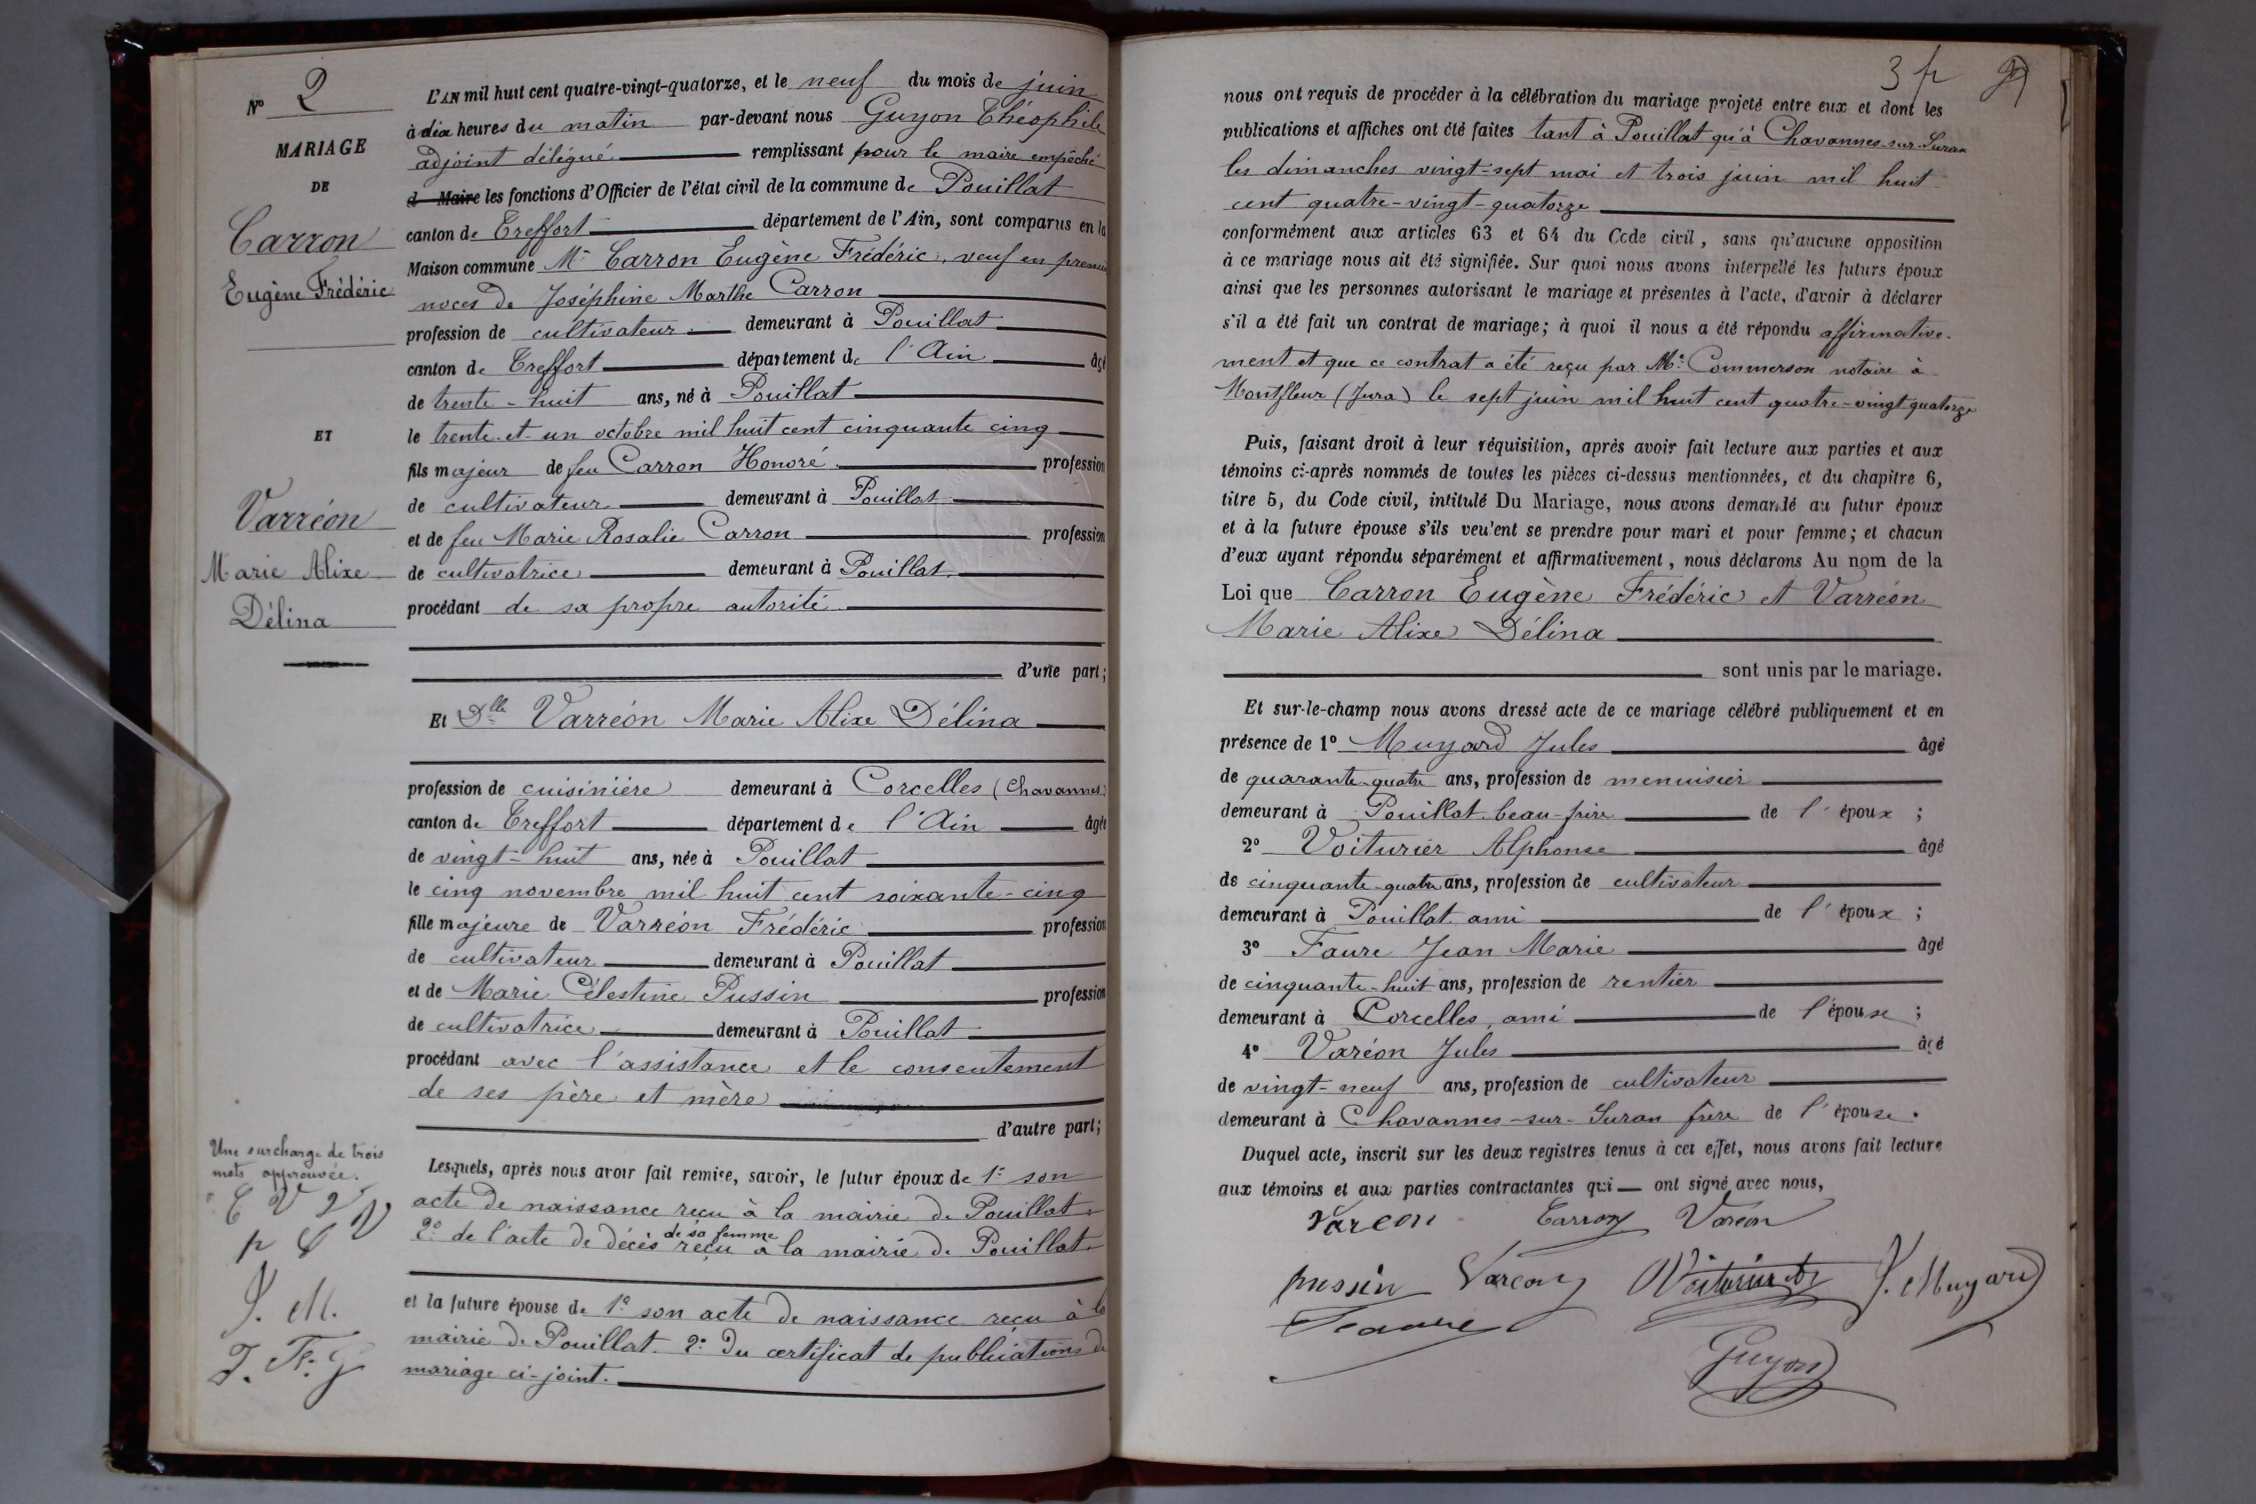 N° 2
MARIAGE
DE
Carron
Eugène Frédéric
ET
Varréon
Marie Alixe
Délina
Une surcharge de trois
mots approuvée.
J. M.
L'AN mil huit cent quatre-vingt-quatorze, et le neuf du mois de juin
à dix heures du matin par-devant nous Guyon Théophile
adjoint délégué remplissant pour le maire empêché
d Maire les fonctions d'Officier de l'état civil de la commune de Pouillat
canton de Treffort département de l'Ain, sont comparus en la
Maison commune Mr Carron Eugène Frédéric, veuf en premières
noces de Joséphine Marthe Carron
profession de cultivateur demeurant à Pouillat
canton de Treffort département de l'Ain âgé
de trente-huit ans, né à Pouillat
le trente-et-un octobre mil huit cent cinquante cinq
fils majeur de feu Carron Honoré profession
de cultivateur demeurant à Pouillat
et de feu Marie Rosalie Carron profession
de cultivatrice demeurant à Pouillat
procédant de sa propre autorité
d'une part;
Et Dlle Varréon Marie Alixe Délina
profession de cuisinière demeurant à Corcelles (Chavannes)
canton de Treffort département de l'Ain âgée
de vingt-huit ans, née à Pouillat
le cinq novembre mil huit cent soixante-cinq
fille majeure de Varréon Frédéric profession
de cultivateur demeurant à Pouillat
et de Marie Célestine Pussin profession
de cultivatrice demeurant à Pouillat
procédant avec l'assistance et le consentement
de ses père et mère
d'autre part;
Lesquels, après nous avoir fait remise, savoir, le futur époux de 1° son
acte de naissance reçu à la mairie de Pouillat
2° de l'acte de décès de sa femme reçu à la mairie de Pouillat
et la future épouse de 1° son acte de naissance reçu à la
mairie de Pouillat. 2° Du certificat de publications de
mariage ci-joint.
3 fr
nous ont requis de procéder à la célébration du mariage projeté entre eux et dont les
publications et affiches ont été faites tant à Pouillat qu'à Chavannes-sur-Suran
les dimanches vingt-sept mai et trois juin mil huit
cent quatre-vingt-quatorze
conformément aux articles 63 et 64 du Code civil, sans qu'aucune opposition
à ce mariage nous ait été signifiée. Sur quoi nous avons interpellé les futurs époux
ainsi que les personnes autorisant le mariage et présentes à l'acte, d'avoir à déclarer
s'il a été fait un contrat de mariage; à quoi il nous a été répondu affirmative-
ment et que ce contrat a été reçu par Me Commerson notaire à
Montfleur (Jura) le sept juin mil huit cent quatre-vingt quatorze
Puis, faisant droit à leur réquisition, après avoir fait lecture aux parties et aux
témoins ci-après nommés de toutes les pièces ci-dessus mentionnées, et du chapitre 6,
titre 5, du Code civil, intitulé Du Mariage, nous avons demandé au futur époux
et à la future épouse s'ils veulent se prendre pour mari et pour femme; et chacun
d'eux ayant répondu séparément et affirmativement, nous déclarons Au nom de la
Loi que Carron Eugène Frédéric et Varréon
Marie Alixe Délina
sont unis par le mariage.
Et sur-le-champ nous avons dressé acte de ce mariage célébré publiquement et en
présence de 1° Muyard Jules âgé
de quarante-quatre ans, profession de menuisier
demeurant à Pouillat beau-frère de l'époux ;
2° Voiturier Alphonse âgé
de cinquante-quatre ans, profession de cultivateur
demeurant à Pouillat ami de l'époux ;
3° Faure Jean Marie âgé
de cinquante-huit ans, profession de rentier
demeurant à Corcelles, ami de l'épouse ;
4° Varéon Jules âgé
de vingt-neuf ans, profession de cultivateur
demeurant à Chavannes-sur-Suran frère de l'épouse.
Duquel acte, inscrit sur les deux registres tenus à cet effet, nous avons fait lecture
aux témoins et aux parties contractantes qui ont signé avec nous,
Vareon Carron Vareon
pussin Vareon Voiturier J. Muyard
Faure
Guyon